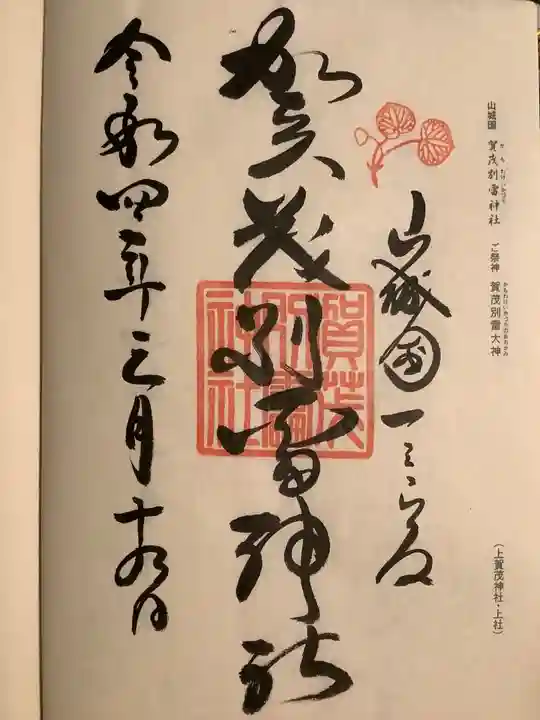 山城国 賀茂別雷神社 ご祭神 賀茂別雷大神
（上賀茂神社・上社）
山城国一之宮
賀茂別雷神社
賀茂
別雷
社
令和四年三月十九日